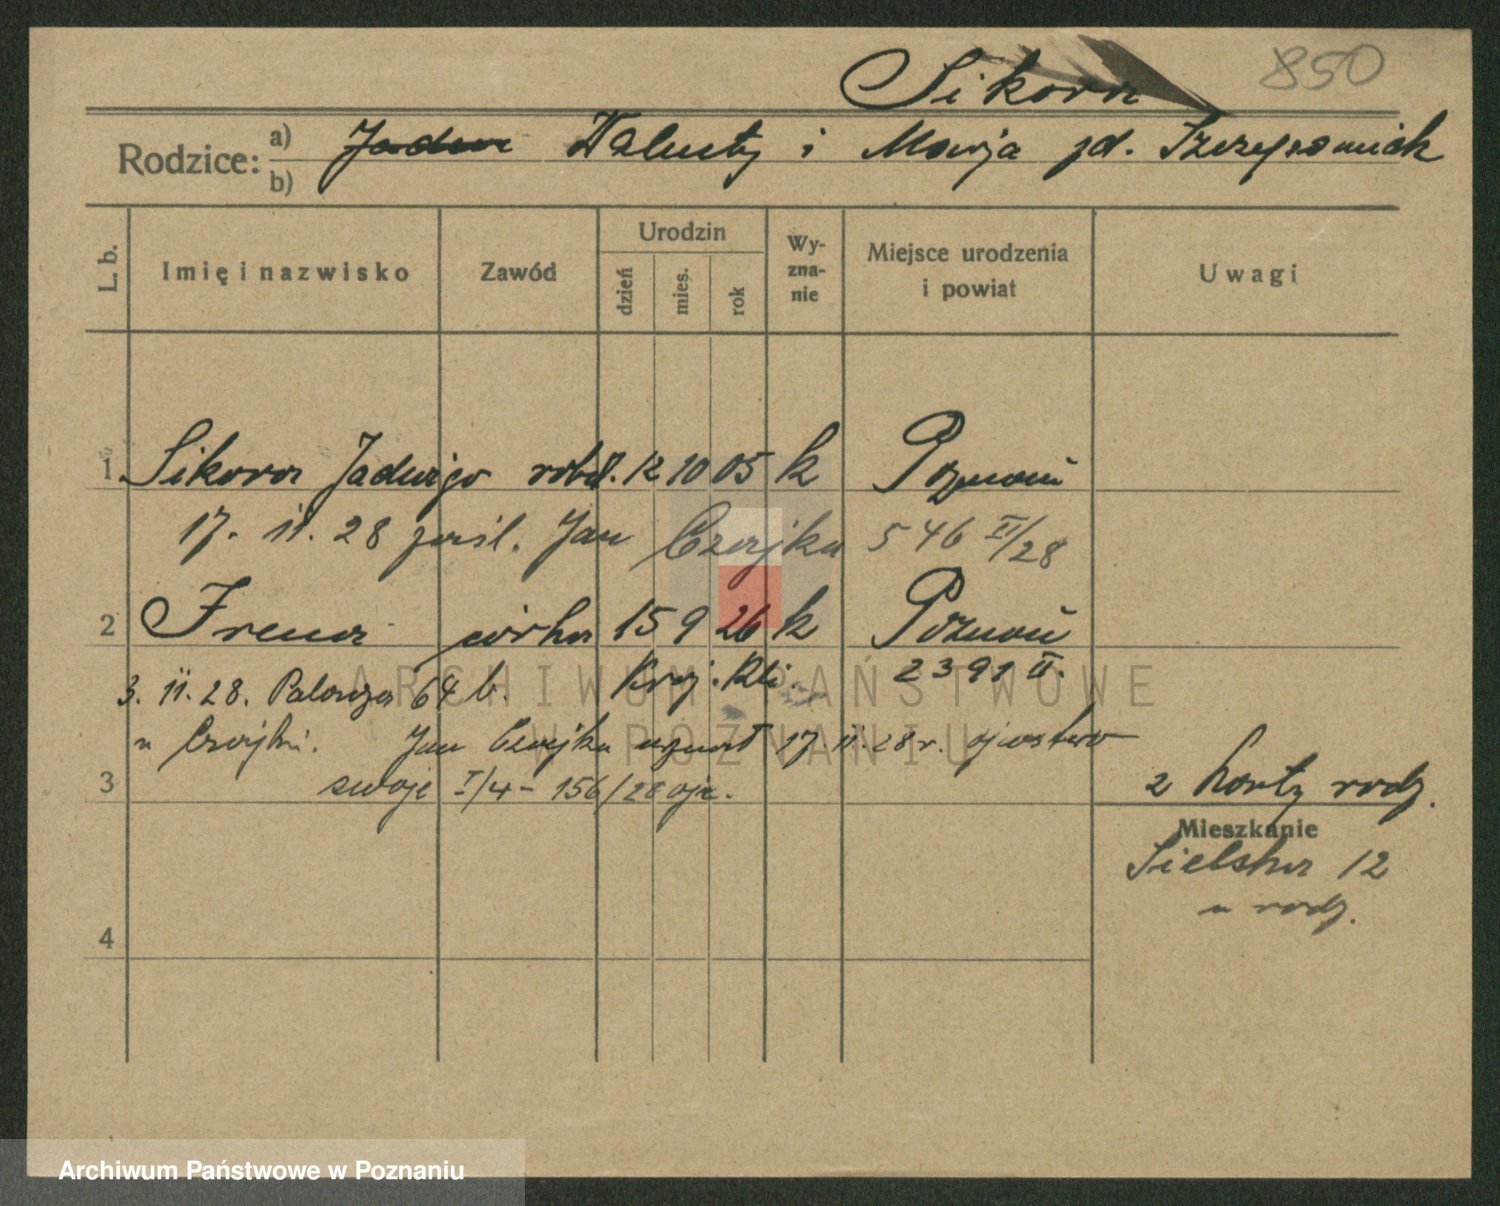 850
Sikora
Rodzice: a) Walenty i Marja zd. Szczepaniak
b)
L. b. Imię i nazwisko Zawód Urodzin dzień mies. rok Wyznanie Miejsce urodzenia i powiat Uwagi
1 Sikora Jadwiga robot. 12 10 05 k Poznań
17. 11. 28 Jan Czajka 546 II/28
2 Irena córka 15 9 26 k Poznań
3. 11. 28. Palacza 64 b. 2391 II.
u Czajki. Jan Czajka uznał 17 11. 28 r. ojcostwo
3 swoje I/4 - 156/28
2 karty rodz.
Mieszkanie
Sielska 12
u rodz.
4
ARCHIWUM PAŃSTWOWE
W POZNANIU
Archiwum Państwowe w Poznaniu